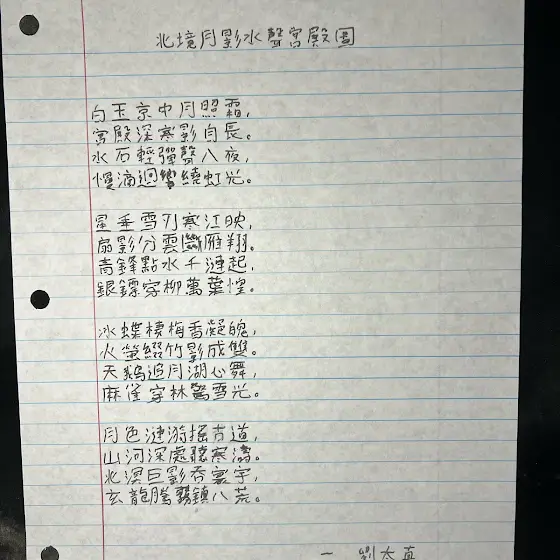 北境月影水聲宮殿圖
白玉京中月照霜，
宮殿深寒影自長。
水石輕彈聲入夜，
慢滴迴響繞虹光。
星垂雪刃寒江映，
扇影分雲斷雁翔。
青鋒點水千漣起，
銀鏢穿柳萬葉惶。
冰蝶棲梅香凝魄，
火螢綴竹影成雙。
天鵝追月湖心舞，
麻雀穿林驚雪光。
月色漣漪搖古道，
山河深處聽寒濤。
北溟巨影吞寰宇，
玄龍騰霧鎮八荒。
— 劉太真